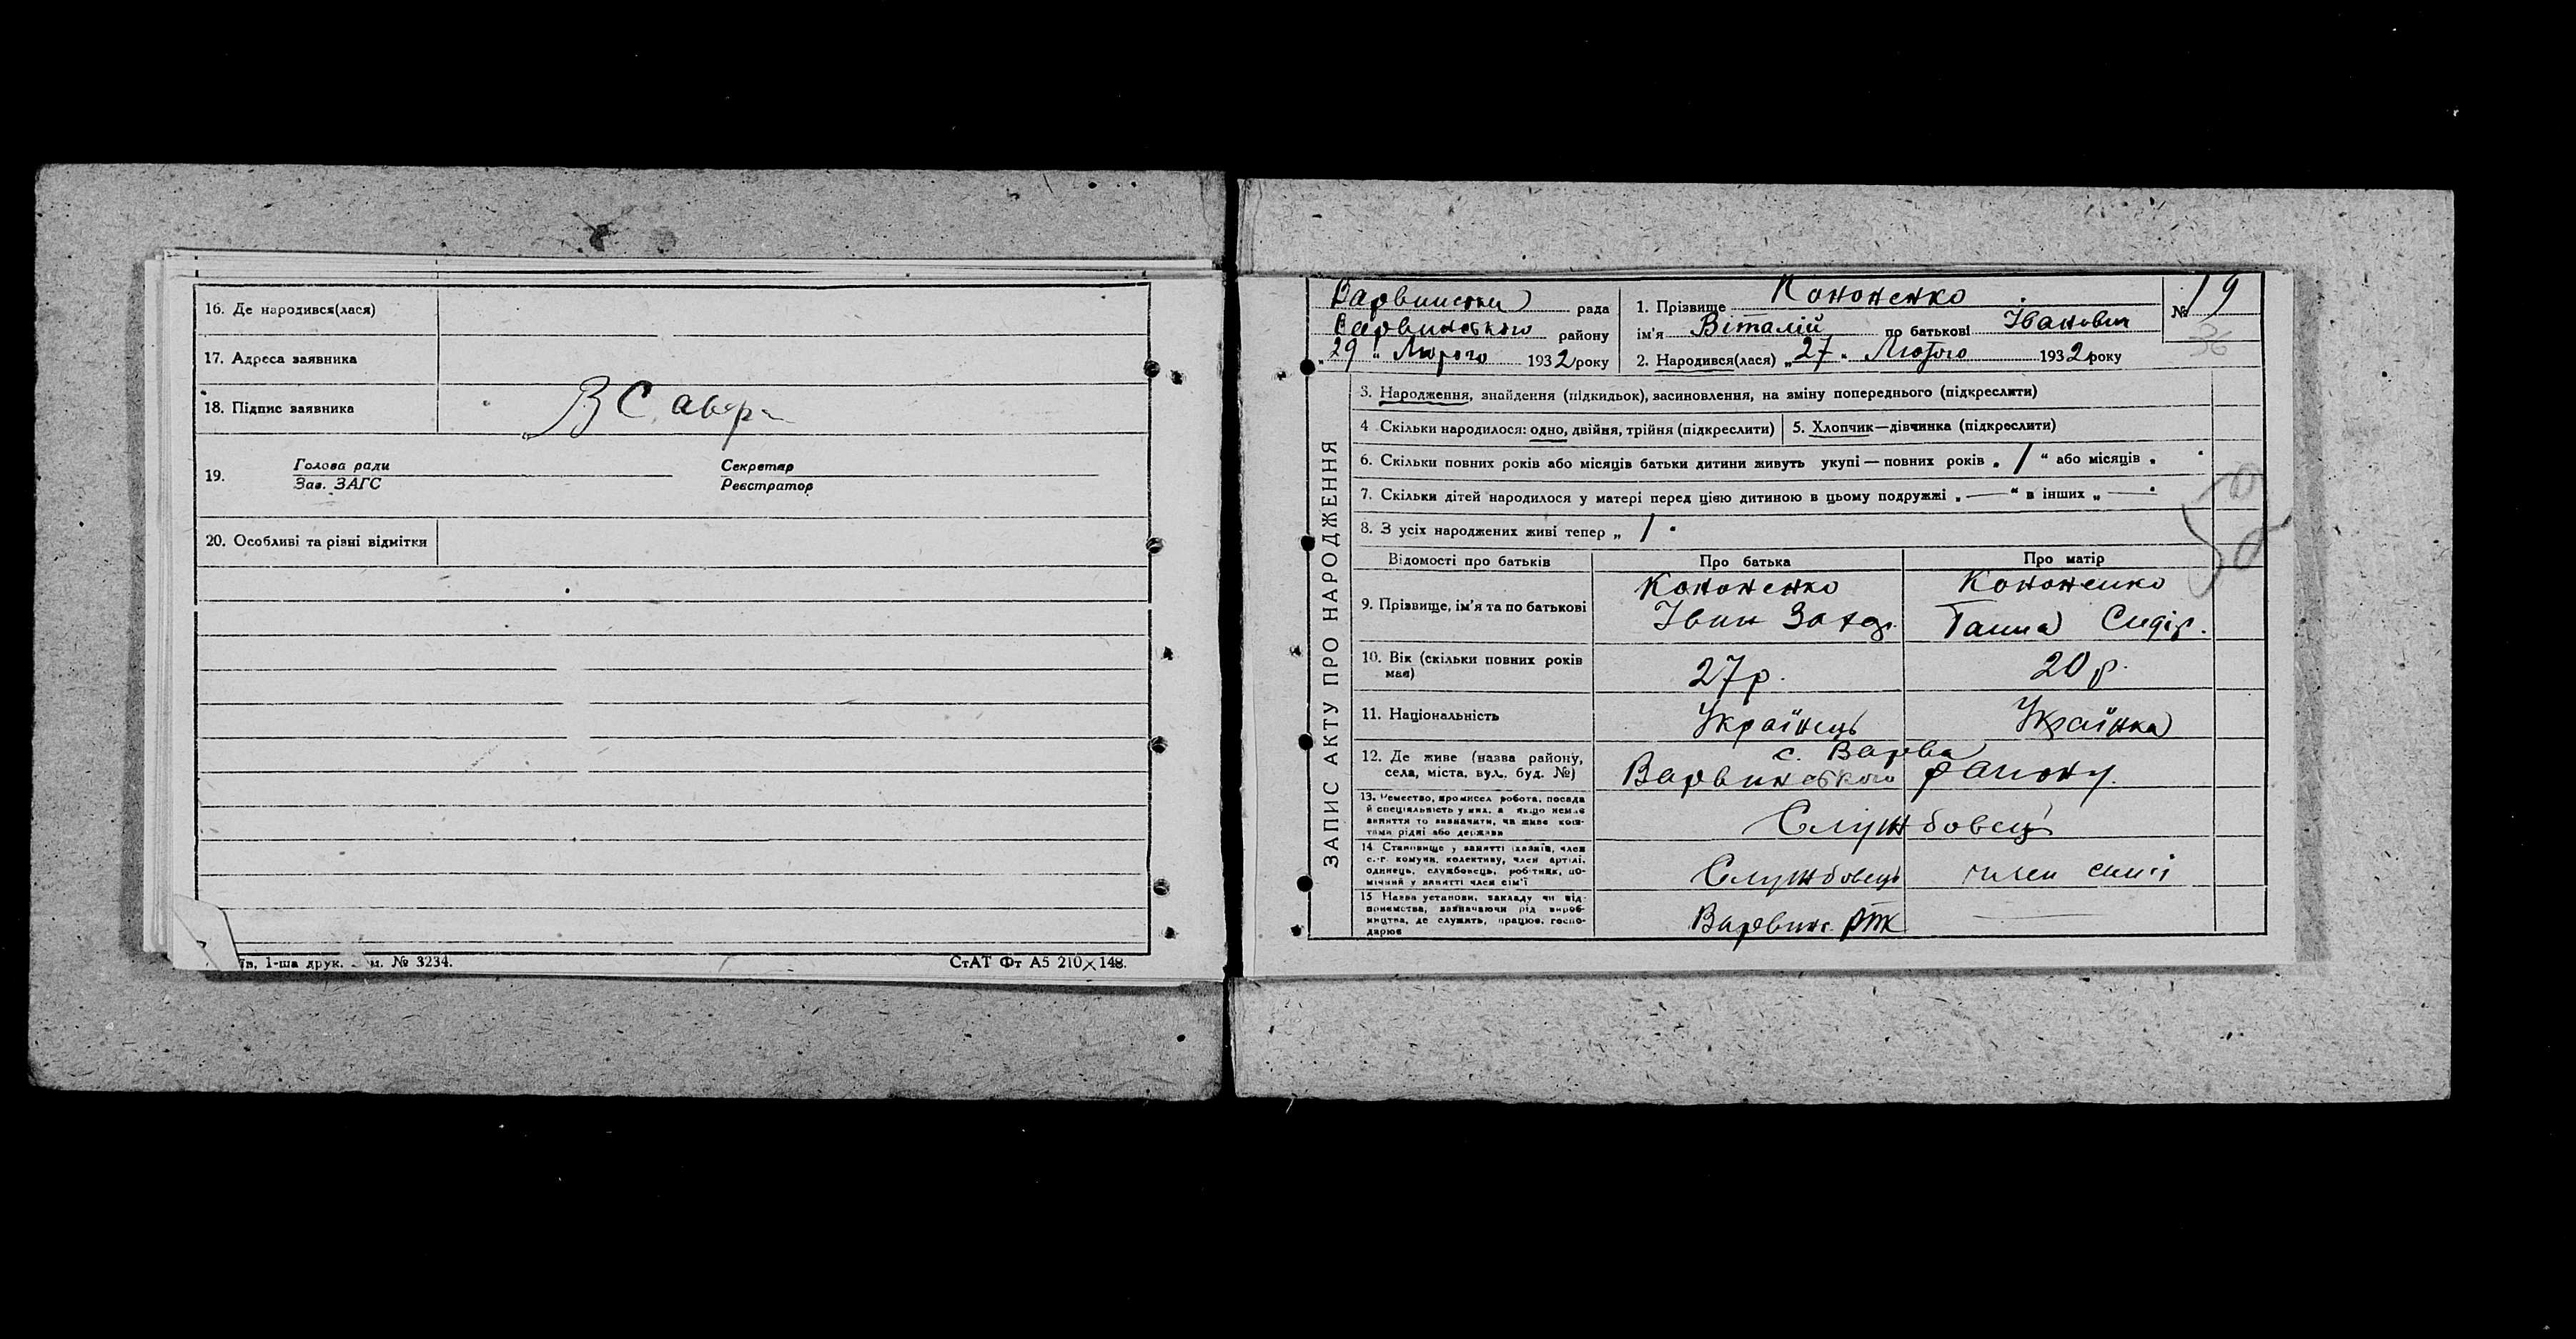 16. Де народився(лася)
17. Адреса заявника
18. Підпис заявника
19. Голова ради Секретар
Зав. ЗАГС Реєстратор
20. Особливі та різні відмітки
1-ша друк. м. № 3234.
СтАТ Фт А5 210×148.
ЗАПИС АКТУ ПРО НАРОДЖЕННЯ
рада
Варвинського району
„29“ Лютого 1932 року
1. Прізвище Кононенко
ім'я Віталій по батькові Іванович
2. Народився(лася) „27“ Лютого 1932 року
№ 19
36
3. Народження, знайдення (підкидьок), засиновлення, на зміну попереднього (підкреслити)
4 Скільки народилося: одно, двійня, трійня (підкреслити)
5. Хлопчик—дівчинка (підкреслити)
6. Скільки повних років або місяців батьки дитини живуть укупі — повних років „ 1 “ або місяців „
7. Скільки дітей народилося у матері перед цією дитиною в цьому подружжі „ — “ в інших „ — “
8. З усіх народжених живі тепер „ 1 “
Відомості про батьків Про батька Про матір
9. Прізвище, ім'я та по батькові
Кононенко
Іван
Кононенко
Ганна Сидір.
10. Вік (скільки повних років має) 27 р. 20 р.
11. Національність Українець Українка
12. Де живе (назва району,
села, міста, вул. буд. №)
с. Варва
Варвинського району.
13. Ремество, промисел робота, посада
й спеціальність у них, а якщо немає
заняття то зазначити, чи живе кош-
тами рідні або держави
Службовець
14 Становище у занятті (хазяїн, член
с.-г. комуни, колективу, член артілі,
одинець, службовець, робітник, по-
мічний у занятті член сім'ї
Службовець член сим'ї
15 Назва установи, закладу чи під-
приємства, зазначаючи рід вироб-
ництва, де служить, працює, госпо-
дарює
Варвинс. РТК —